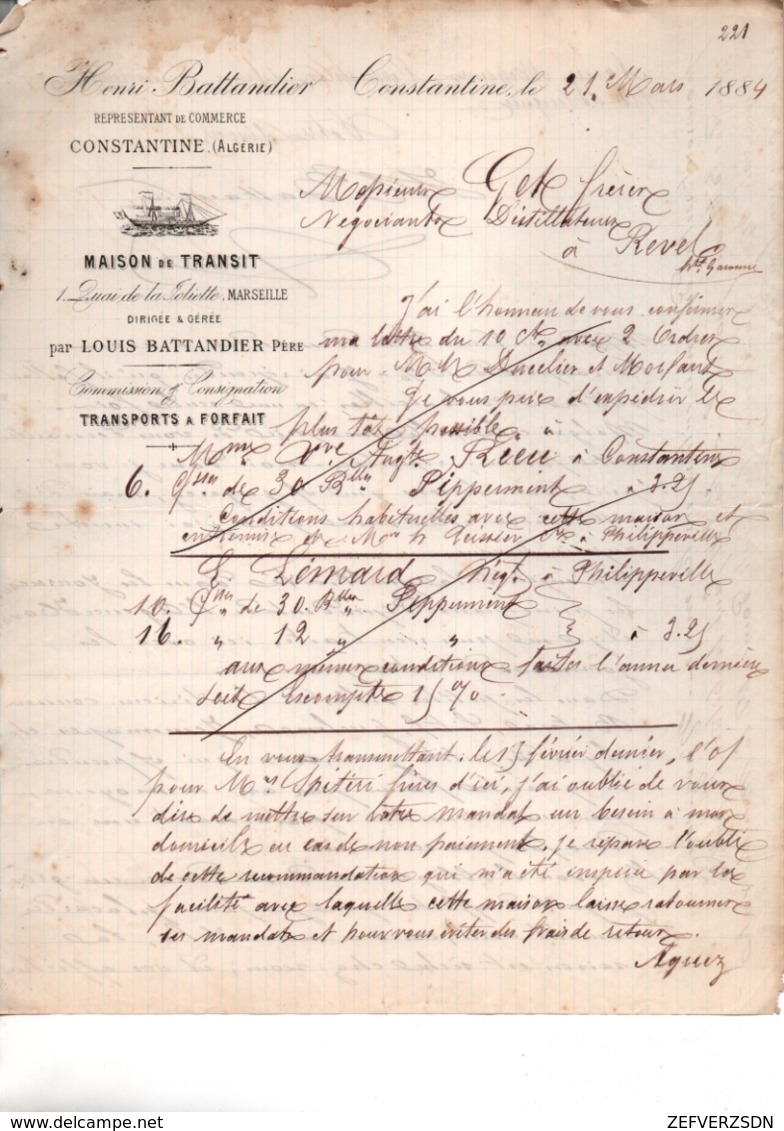 221
Henri Battandier
Constantine, le 21 Mars 1884
REPRESENTANT DE COMMERCE
CONSTANTINE (ALGÉRIE)
Messieurs Get frères
Negociants Distillateurs
à Revel
hte Garonne
MAISON DE TRANSIT
1, Quai de la Joliette, MARSEILLE
DIRIGÉE & GÉRÉE
par LOUIS BATTANDIER PÈRE
Commission & Consignation
TRANSPORTS A FORFAIT
J'ai l'honneur de vous confirmer
ma lettre du 10 Ct avec 2 Ordres
pour MM Ducelier et Morfaud
Je vous prie d'expédier le
plus tôt possible à
Mme Vve Augte à Constantine
6. Csses de 30 Blles Pipperment à 3.25
Conditions habituelles avec cette maison et
Mr à Philippeville
E. Lémard Négt à Philippeville
10. Csses de 30 Blles Pepperment
16. " 12 " " à 3.25
aux mêmes conditions faites l'année dernière
soit Escompte 15 %
En vous transmettant le 15 février dernier, l'o/
pour Mrs Spitéri frères d'ici, j'ai oublié de vous
dire de mettre sur votre mandat un besoin à mon
domicile en cas de non paiement, je répare l'oubli
de cette recommandation qui m'a été inspirée par la
facilité avec laquelle cette maison laisse retourner
ses mandats et pour vous éviter des frais de retour.
Agréez
ZEFVERZSDN